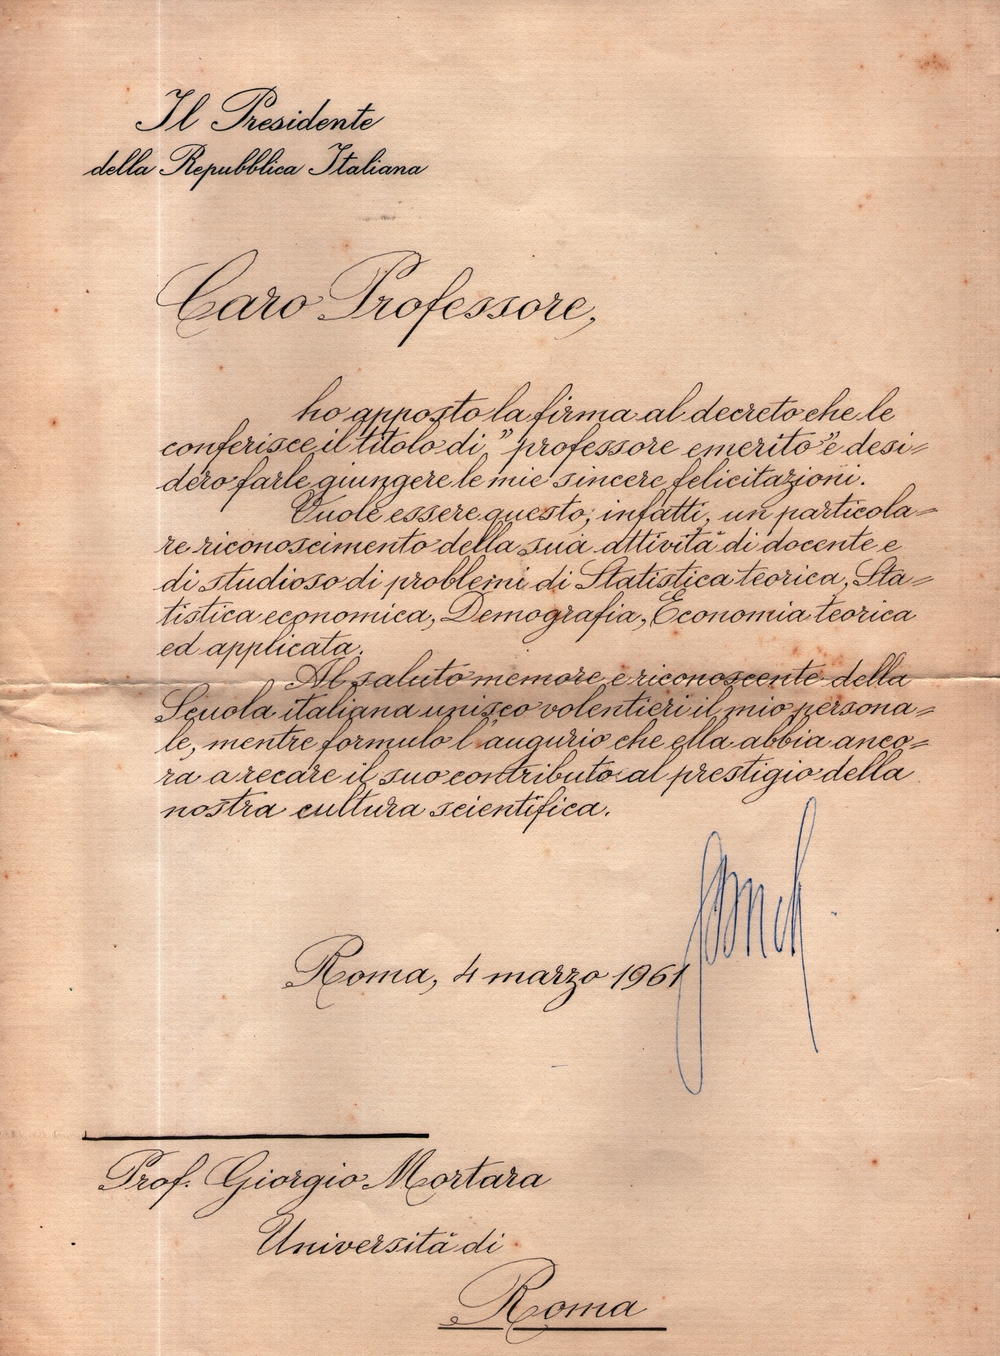 Il Presidente
della Repubblica Italiana
Caro Professore,
ho apposto la firma al decreto che le
conferisce il titolo di „ professore emerito " e desi=
dero farle giungere le mie sincere felicitazioni.
Vuole essere questo, infatti, un particola=
re riconoscimento della sua attività di docente e
di studioso di problemi di Statistica teorica, Sta=
tistica economica, Demografia, Economia teorica
ed applicata.
Al saluto memore e riconoscente della
Scuola italiana unisco volentieri il mio persona=
le, mentre formulo l'augurio che ella abbia anco=
ra a recare il suo contributo al prestigio della
nostra cultura scientifica.
Roma, 4 marzo 1961
Prof. Giorgio Mortara
Università di
Roma